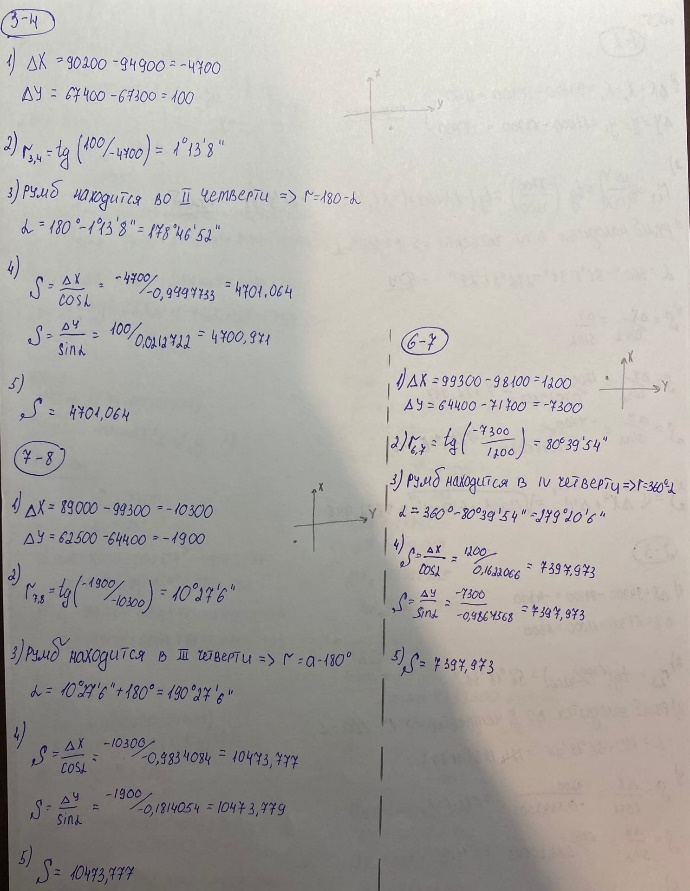 3-4
1) ΔX = 90200 - 94900 = -4700
ΔY = 67400 - 67300 = 100
X
Y
2) r3,4 = tg (100/-4700) = 1°13'8"
3) Румб находится во II четверти => r=180-α
α = 180° - 1°13'8" = 178°46'52"
4) S = ΔX/cosα = -4700/-0,9997733 = 4701,064
S = ΔY/sinα = 100/0,0212722 = 4700,971
5) S = 4701,064
7-8
1) ΔX = 89000 - 99300 = -10300
ΔY = 62500 - 64400 = -1900
X
Y
2) r7,8 = tg (-1900/-10300) = 10°27'6"
3) Румб находится в III четверти => r = a - 180°
α = 10°27'6" + 180° = 190°27'6"
4) S = ΔX/cosα = -10300/-0,9834084 = 10473,777
S = ΔY/sinα = -1900/-0,1814054 = 10473,779
5) S = 10473,777
6-7
1) ΔX = 99300 - 98100 = 1200
ΔY = 64400 - 71700 = -7300
X
Y
2) r6,7 = tg (-7300/1200) = 80°39'54"
3) Румб находится в IV четверти => r=360°-α
α = 360° - 80°39'54" = 279°20'6"
4) S = ΔX/cosα = 1200/0,1622066 = 7397,973
S = ΔY/sinα = -7300/-0,9867568 = 7397,973
5) S = 7397,973